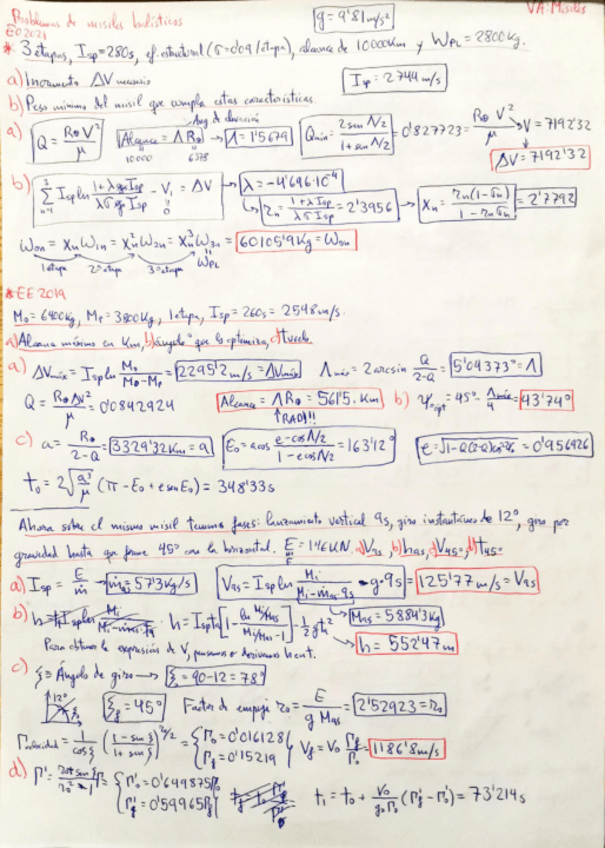 Problemas de misiles balísticos
g = 9'81 m/s²
VA: Misiles
EO2021
* 3 etapas, Isp = 280s, ef. estructural (σ = 0'09/etapa), alcance de 10000Km y W_PL = 2800Kg.
a) Incremento ΔV necesario
Isp = 2744 m/s
b) Peso mínimo del misil que cumpla estas características.
Ang. de duración
a) Q = R⊕V²/μ  Alcance = Λ R⊕ → Λ = 1'5679  Qmin = 2 sen Λ/2 / (1 + sen Λ/2) = 0'827723 = R⊕ V²/μ → V = 7192'32
10000 6378
ΔV = 7192'32
b) Σ Isp ln (1+λ g₀ Isp)/(λ σ g Isp) - V₁ = ΔV → λ = -4'696·10⁻⁴
→ r_n = (1+λ Isp)/(λ σ Isp) = 2'3956 → χ_n = r_n(1-σ_n)/(1-r_n σ_n) = 2'7792
W₀n = χ_n W₁n = χ_n² W₂n = χ_n³ W₃n = 60105'9 Kg = W₀n
1 etapa 2ª etapa 3ª etapa W_PL
* EE 2019
M₀ = 6400Kg, M_P = 3800Kg, 1 etapa, Isp = 260s = 2548 m/s.
a) Alcance máximo en Km, b) ángulo que lo optimiza, c) t vuelo.
a) ΔVmáx = Isp ln M₀/(M₀-M_P) = 2295'2 m/s = ΔVmáx  Λmáx = 2 arcsin Q/(2-Q) = 5'04373° = Λ
Q = R⊕ ΔV²/μ = 0'0842924  Alcance = Λ R⊕ = 561'5. Km  b) γopt = 45° - Λmáx/4 = 43'74°
↑ RAD!!!
c) a = R⊕/(2-Q) = 3329'32 Km = a  E₀ = acos (e - cos Λ/2)/(1 - e cos Λ/2) = 163'12°  e = √(1-Q(2-Q)cos²γ₀) = 0'956926
t₀ = 2√(a³/μ) (π - E₀ + e sen E₀) = 348'33s
Ahora sobre el mismo misil tenemos fases: lanzamiento vertical 9s, giro instantáneo de 12°, giro por
gravedad hasta que forme 45° con la horizontal. E = 146KN. a) V₉s, b) h₉s, c) V₄₅°, d) t₄₅°
a) Isp = E/ṁ → ṁ = 57'3 Kg/s  V₉s = Isp ln Mi/(Mi - ṁ·9s) - g·9s = 125'77 m/s = V₉s
M₉s = 5884'3 Kg
b) h = Isp t [1 - ln(Mi/M₉s)/(Mi/M₉s - 1)] - ½ g t² → h = 552'47 m
Para obtener la expresión de V, pensamos o derivamos h en t.
c) ξ ≡ Ángulo de giro → ξ = 90 - 12 = 78°
12° ξ₀  ξ_f = 45°  Factor de empuje r₀ = E/(g M₉s) = 2'52923 = r₀
Γvelocidad = 1/cos ξ ((1 - sen ξ)/(1 + sen ξ))^(r₀/2) = { Γ₀ = 0'016128 Γ_f = 0'15219 }  V_f = V₀ Γ_f/Γ₀ = 1186'8 m/s
d) Γ' = (r₀ + sen ξ)/(r₀² - 1) Γ = { Γ'₀ = 0'649875 Γ₀ Γ'_f = 0'59965 Γ_f }  t₁ = t₀ + V₀/(g₀ Γ₀) (Γ'_f - Γ'₀) = 73'214s